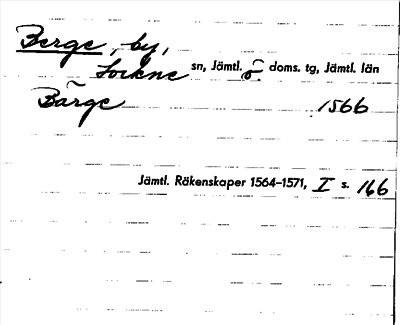 Berge, by,
Lockne sn, Jämtl. ö. doms. tg, Jämtl. län
Bärge 1566
Jämtl. Räkenskaper 1564–1571, I s. 166